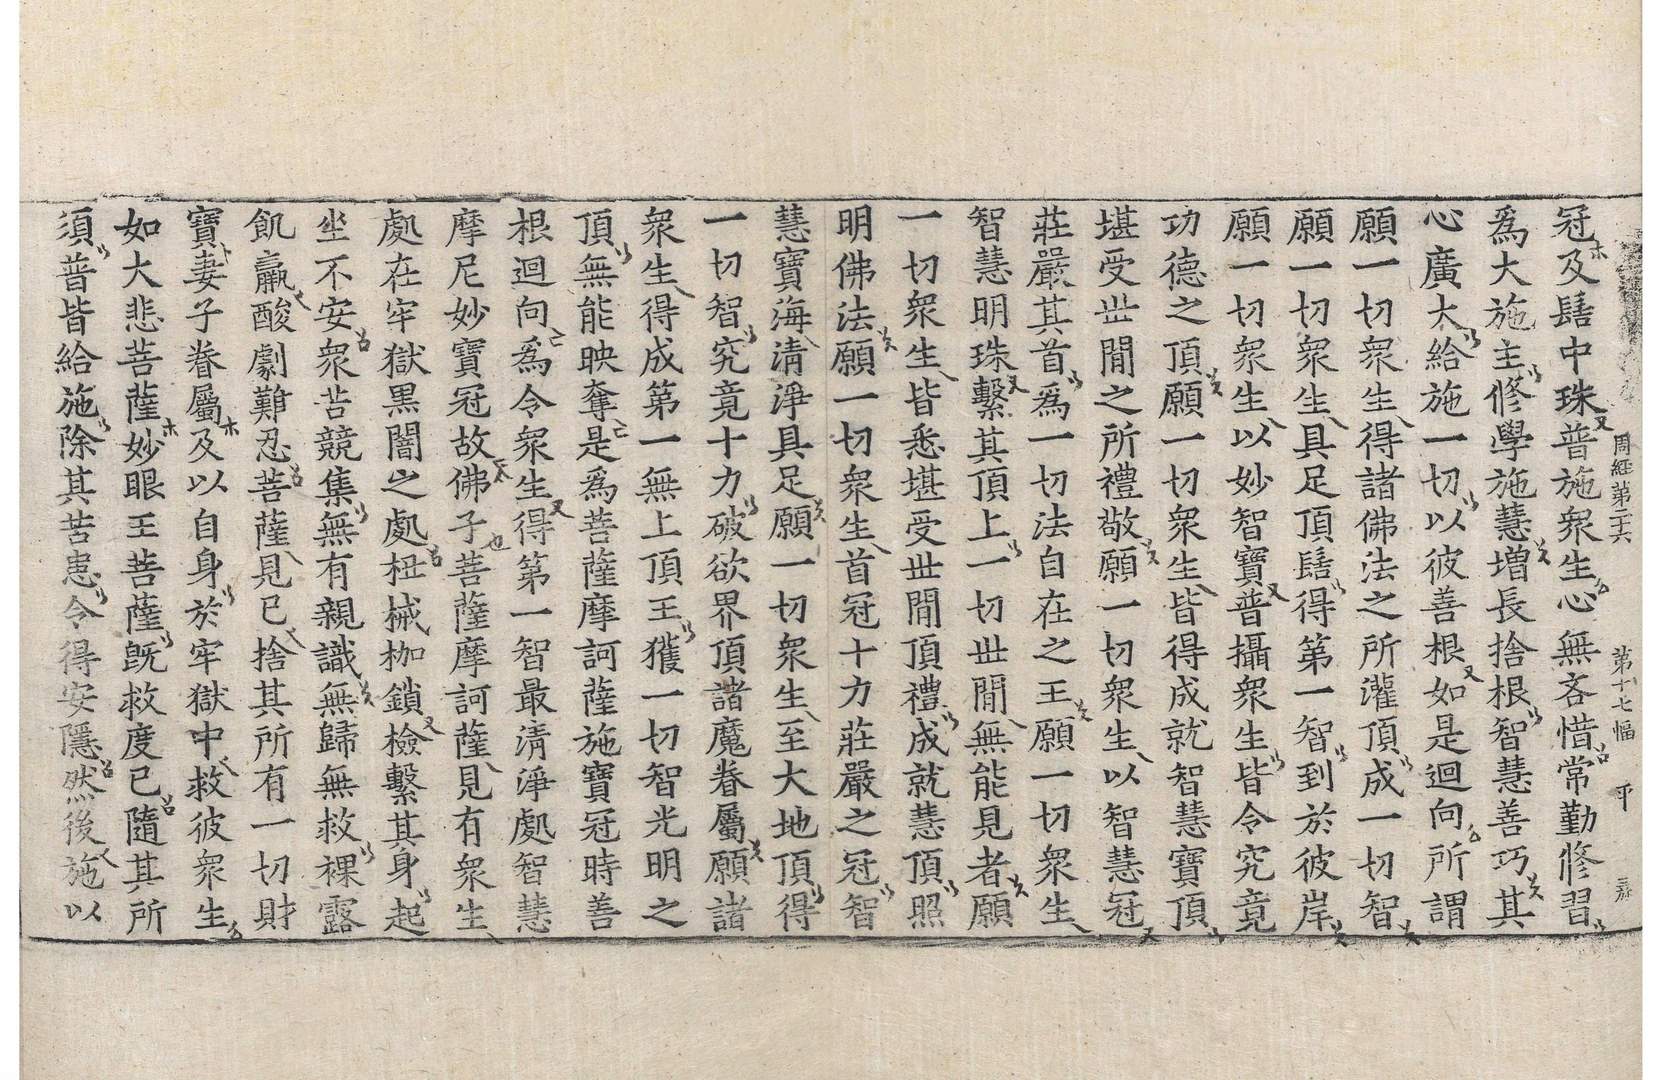 周經第二十六 第十七幅 平
冠及髻中珠普施衆生心無吝惜常勤修習
爲大施主修學施慧增長捨根智慧善巧其
心廣大給施一切以彼善根如是迴向所謂
願一切衆生得諸佛法之所灌頂成一切智
願一切衆生具足頂髻得第一智到於彼岸
願一切衆生以妙智寶普攝衆生皆令究竟
功德之頂願一切衆生皆得成就智慧寶頂
堪受世間之所禮敬願一切衆生以智慧冠
莊嚴其首爲一切法自在之王願一切衆生
智慧明珠繫其頂上一切世間無能見者願
一切衆生皆悉堪受世間頂禮成就慧頂照
明佛法願一切衆生首冠十力莊嚴之冠智
慧寶海清淨具足願一切衆生至大地頂得
一切智究竟十力破欲界頂諸魔眷屬願諸
衆生得成第一無上頂王獲一切智光明之
頂無能映奪是爲菩薩摩訶薩施寶冠時善
根迴向爲令衆生得第一智最清淨處智慧
摩尼妙寶冠故佛子菩薩摩訶薩見有衆生
處在牢獄黑闇之處杻械枷鎖檢繫其身起
坐不安衆苦競集無有親識無歸無救裸露
飢羸酸劇難忍菩薩見已捨其所有一切財
寶妻子眷屬及以自身於牢獄中救彼衆生
如大悲菩薩妙眼王菩薩旣救度已隨其所
須普皆給施除其苦患令得安隱然後施以